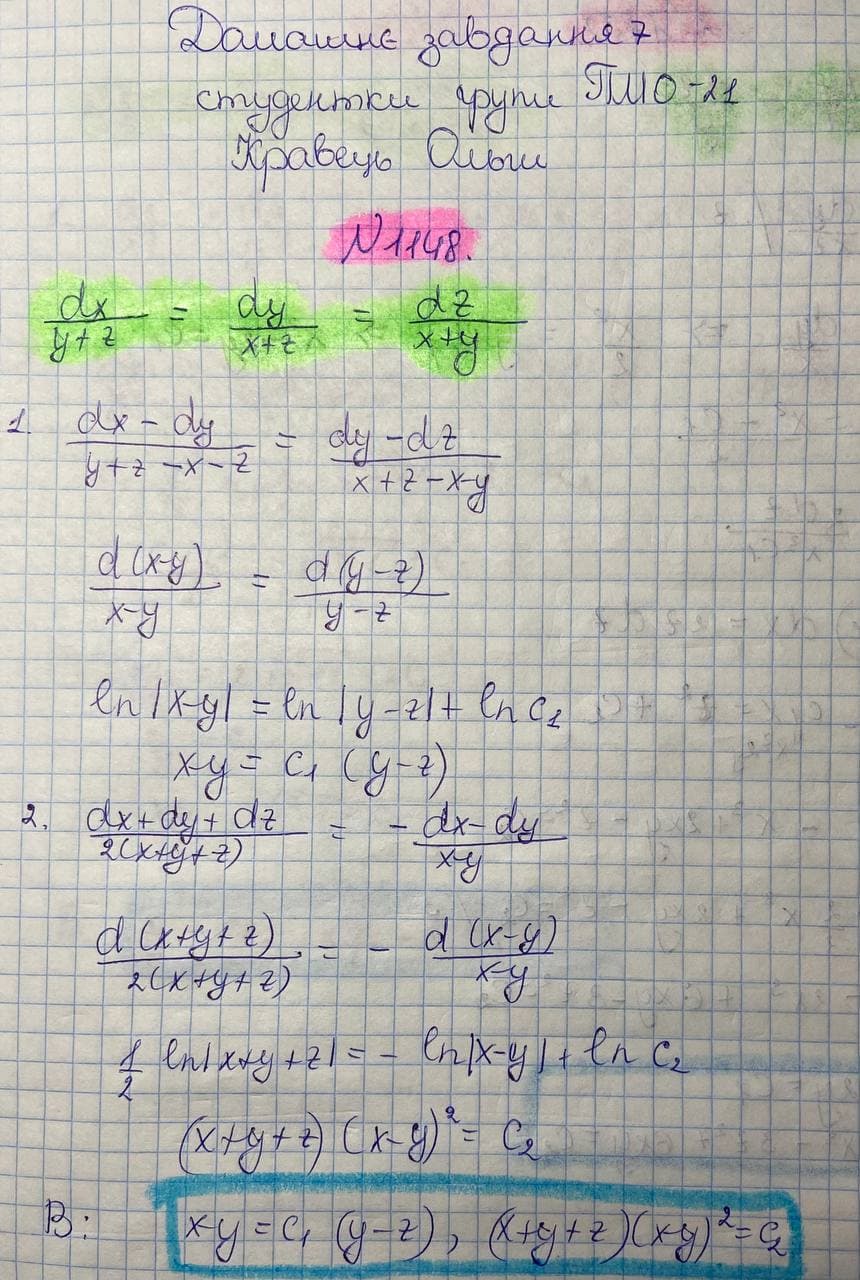 Домашнє завдання 7
студентки групи ПМО-21
Кравець Ольги
N1148.
dx/(y+z) = dy/(x+z) = dz/(x+y)
1. (dx - dy)/(y+z-x-z) = (dy-dz)/(x+z-x-y)
d(x-y)/(x-y) = d(y-z)/(y-z)
ln|x-y| = ln|y-z| + ln c₁
x-y = c₁ (y-z)
2. (dx+dy+dz)/(2(x+y+z)) = - (dx-dy)/(x-y)
d(x+y+z)/(2(x+y+z)) = - d(x-y)/(x-y)
1/2 ln|x+y+z| = - ln|x-y| + ln c₂
(x+y+z)(x-y)² = c₂
В: x-y = c₁ (y-z), (x+y+z)(x-y)² = c₂